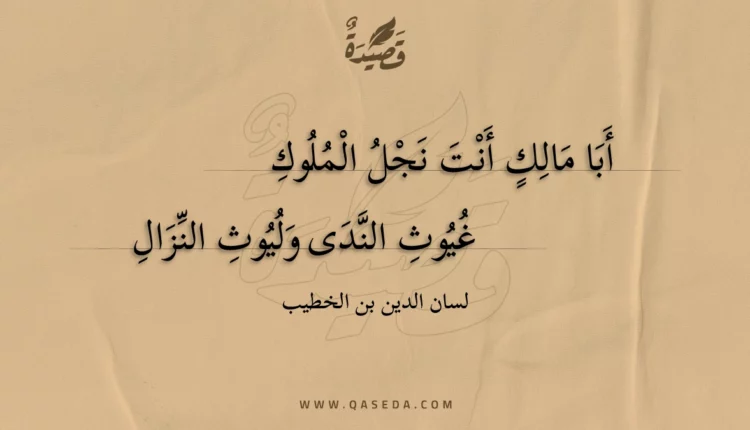 قَصِيدَةٌ
أَبَا مَالِكٍ أَنْتَ نَجْلُ الْمُلُوكِ
غُيُوثِ النَّدَى وَلُيُوثِ النِّزَالِ
لسان الدين بن الخطيب
WWW.QASEDA.COM